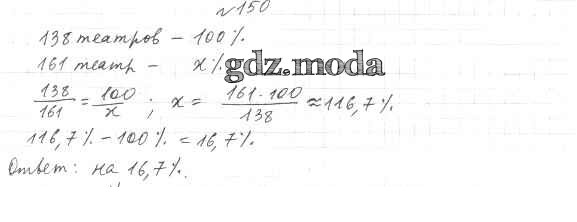 №150
138 театров – 100%.
161 театр – x%. gdz.moda
138/161 = 100/x ; x = 161·100/138 ≈ 116,7%.
116,7% – 100% = 16,7%.
Ответ: на 16,7%.